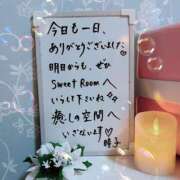 今日も一日、
ありがとうございました♡
明日からも、ぜひ
Sweet Roomへ
いらして下さいね♪♪
癒しの空間へ
いざないます♡